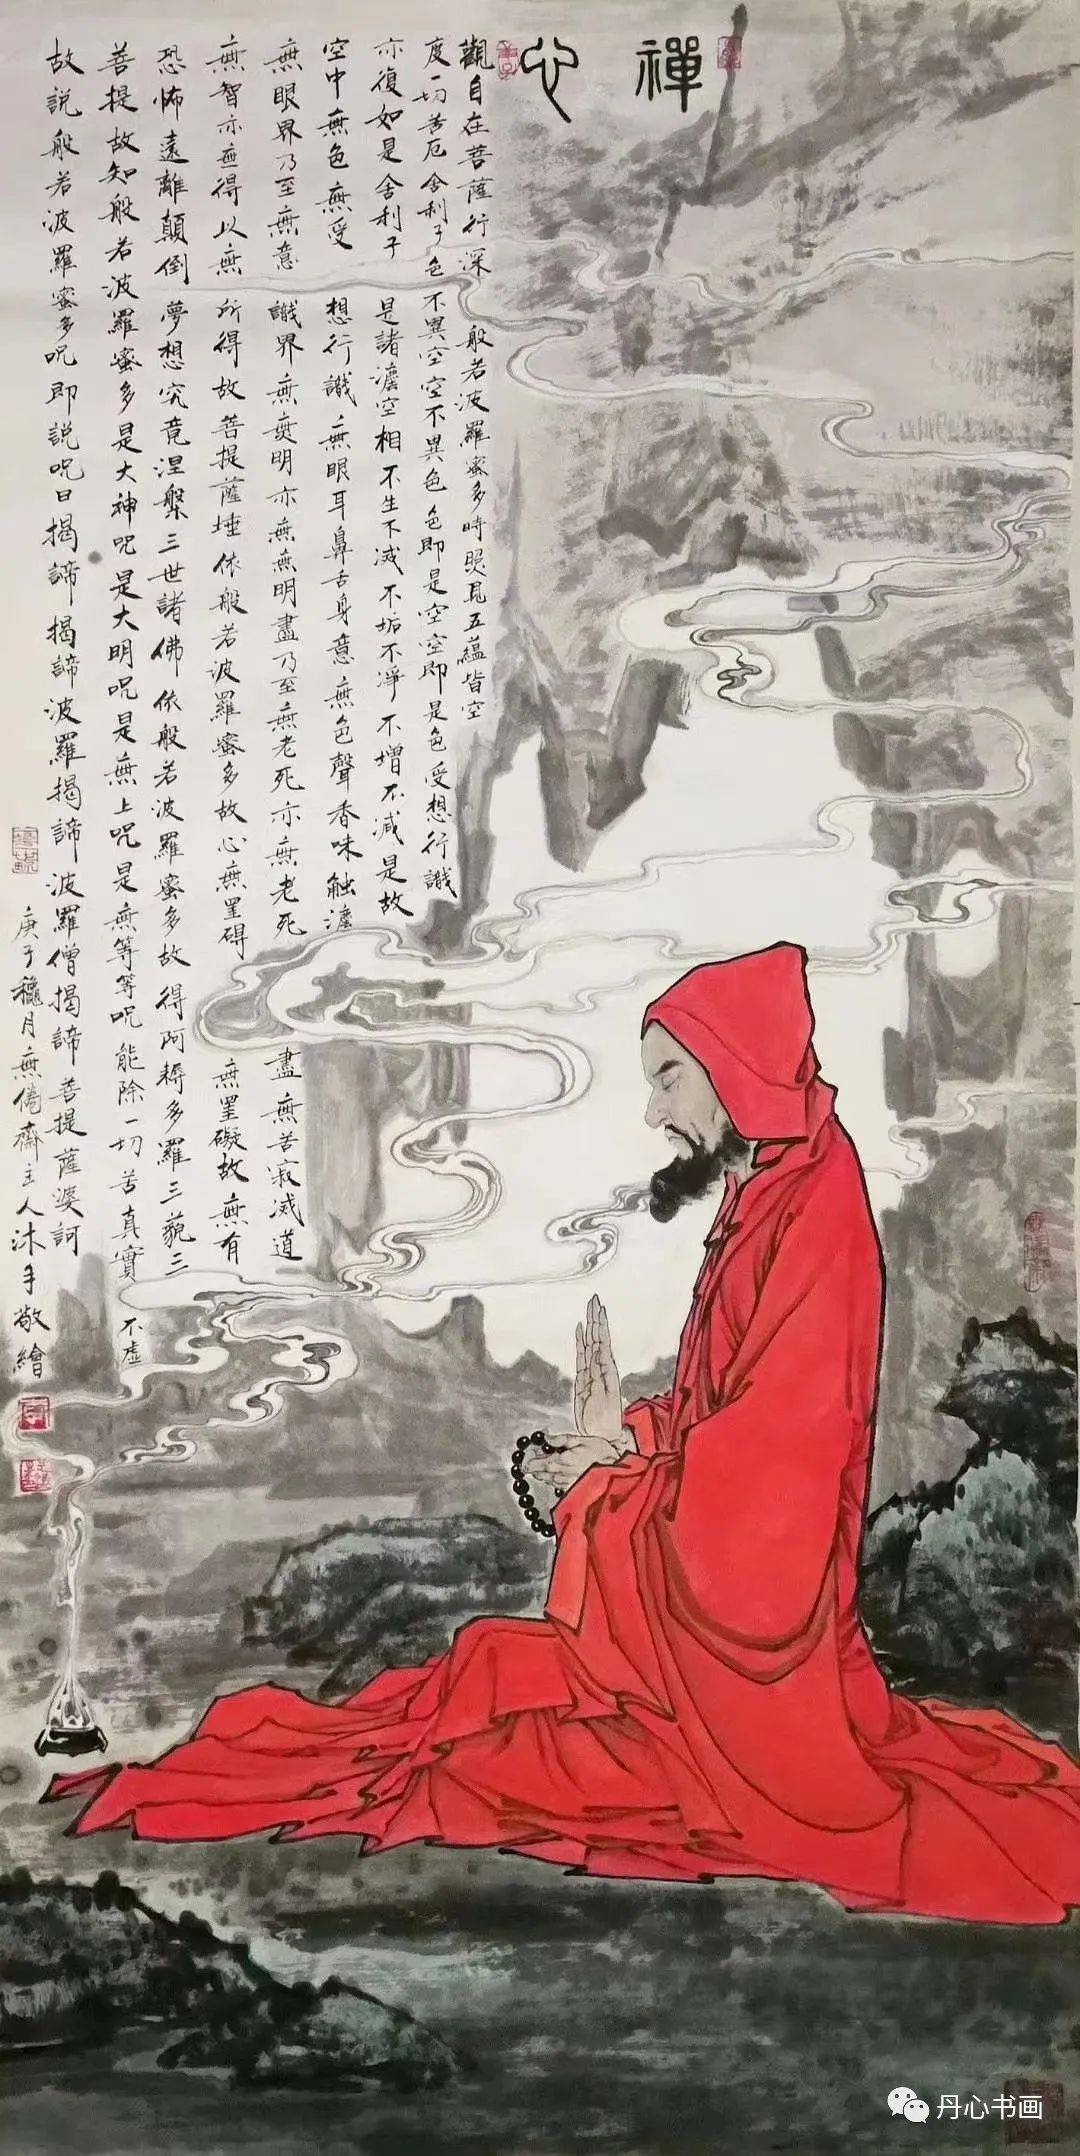 禪心
觀自在菩薩行深般若波羅蜜多時照見五蘊皆空
度一切苦厄舍利子色不異空空不異色色即是空空即是色受想行識
亦復如是舍利子是諸灋空相不生不滅不垢不淨不增不減是故
空中無色無受想行識無眼耳鼻舌身意無色聲香味觸灋
無眼界乃至無意識界無無明亦無無明盡乃至無老死亦無老死盡無苦寂滅道
無智亦無得以無所得故菩提薩埵依般若波羅蜜多故心無罣碍無罣礙故無有
恐怖遠離顛倒夢想究竟涅槃三世諸佛依般若波羅蜜多故得阿耨多羅三藐三
菩提故知般若波羅蜜多是大神咒是大明咒是無上咒是無等等咒能除一切苦真實不虛
故說般若波羅蜜多咒即說咒曰揭諦揭諦波羅揭諦波羅僧揭諦菩提薩婆訶
庚子穐月無倦齋主人沐手敬繪
丹心书画